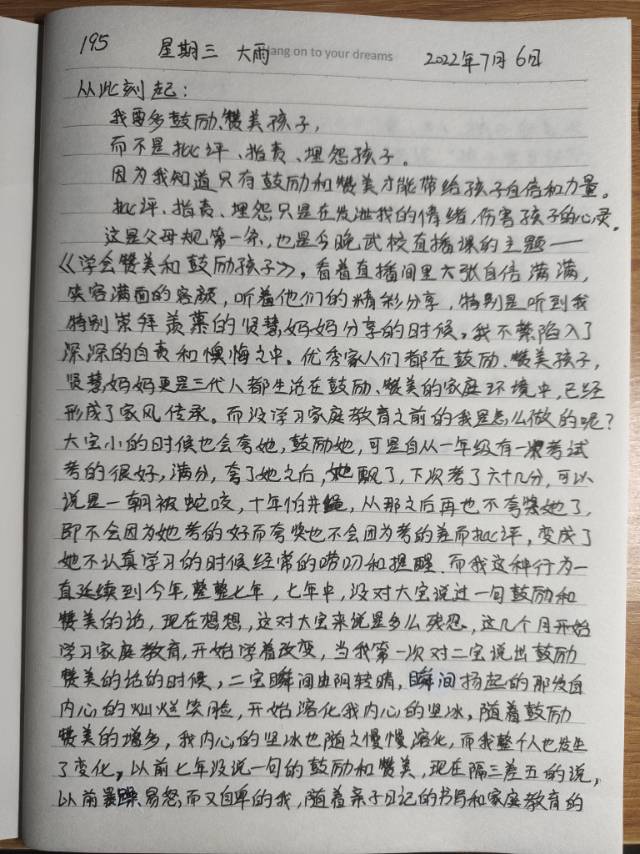 195 星期三 大雨 Hang on to your dreams 2022年7月6日
从此刻起：
我要多鼓励、赞美孩子，
而不是批评、指责、埋怨孩子。
因为我知道只有鼓励和赞美才能带给孩子自信和力量。
批评、指责、埋怨只是在发泄我的情绪，伤害孩子的心灵。
这是父母规第一条，也是今晚武校直播课的主题——
《学会赞美和鼓励孩子》，看着直播间里大张自信满满，
笑容满面的容颜，听着他们的精彩分享，特别是听到我
特别崇拜羡慕的贤慧妈妈分享的时候，我不禁陷入了
深深的自责和懊悔之中。优秀家人们都在鼓励、赞美孩子，
贤慧妈妈更是三代人都生活在鼓励、赞美的家庭环境中，已经
形成了家风传承。而没学习家庭教育之前的我是怎么做的呢？
大宝小的时候也会夸她，鼓励她，可是自从一年级有一次考试
考的很好，满分，夸了她之后，她飘了，下次考了六十几分，可以
说是一朝被蛇咬，十年怕井绳，从那之后再也不夸奖她了，
即不会因为她考的好而夸奖也不会因为考的差而批评，变成了
她不认真学习的时候经常的唠叨和提醒．而我这种行为一
直延续到今年，整整七年，七年中，没对大宝说过一句鼓励和
赞美的话，现在想想，这对大宝来说是多么残忍，这几个月开始
学习家庭教育，开始学着改变，当我第一次对二宝说出鼓励
赞美的话的时候，二宝瞬间由阴转晴，瞬间扬起的那发自
内心的灿烂笑脸，开始溶化我内心的坚冰，随着鼓励
赞美的增多，我内心的坚冰也随之慢慢溶化，而我整个人也发生
了变化，以前七年没说一句的鼓励和赞美，现在隔三差五的说，
以前暴躁、易怒而又自卑的我，随着亲子日记的书写和家庭教育的